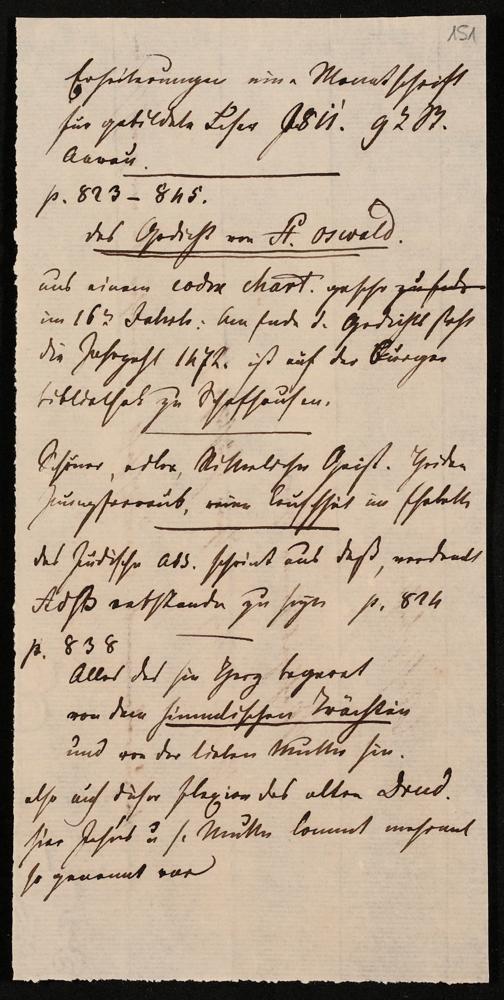 151
Erheiterungen eine Monatschrift
für gebildete Leser 1811. 9 2 B.
Aarau.
p. 823 – 845.
das Gedicht von St. Oswald.
aus einem codex chart. geschr zu Ende
im 16ten Jahrh: Am Ende d. Gedichts steht
die Jahrzahl 1472. ist auf der Bürger
bibliothek zu Schafhausen.
Schöner, edler, Ritterlicher Geist.
Jungfrauraub, reine Keuschheit im Ehebette
das Jüdische scheint aus daß,
entstanden zu seyn p. 824
p. 838
Alles das sin Herz begeret
von dem himmlischen Trächtin
und von der lieben Mutter sin.
also auch dieser flexion des alten Drud.
hier Jesus u s. Mutter kommt mehrmal
so genannt vor